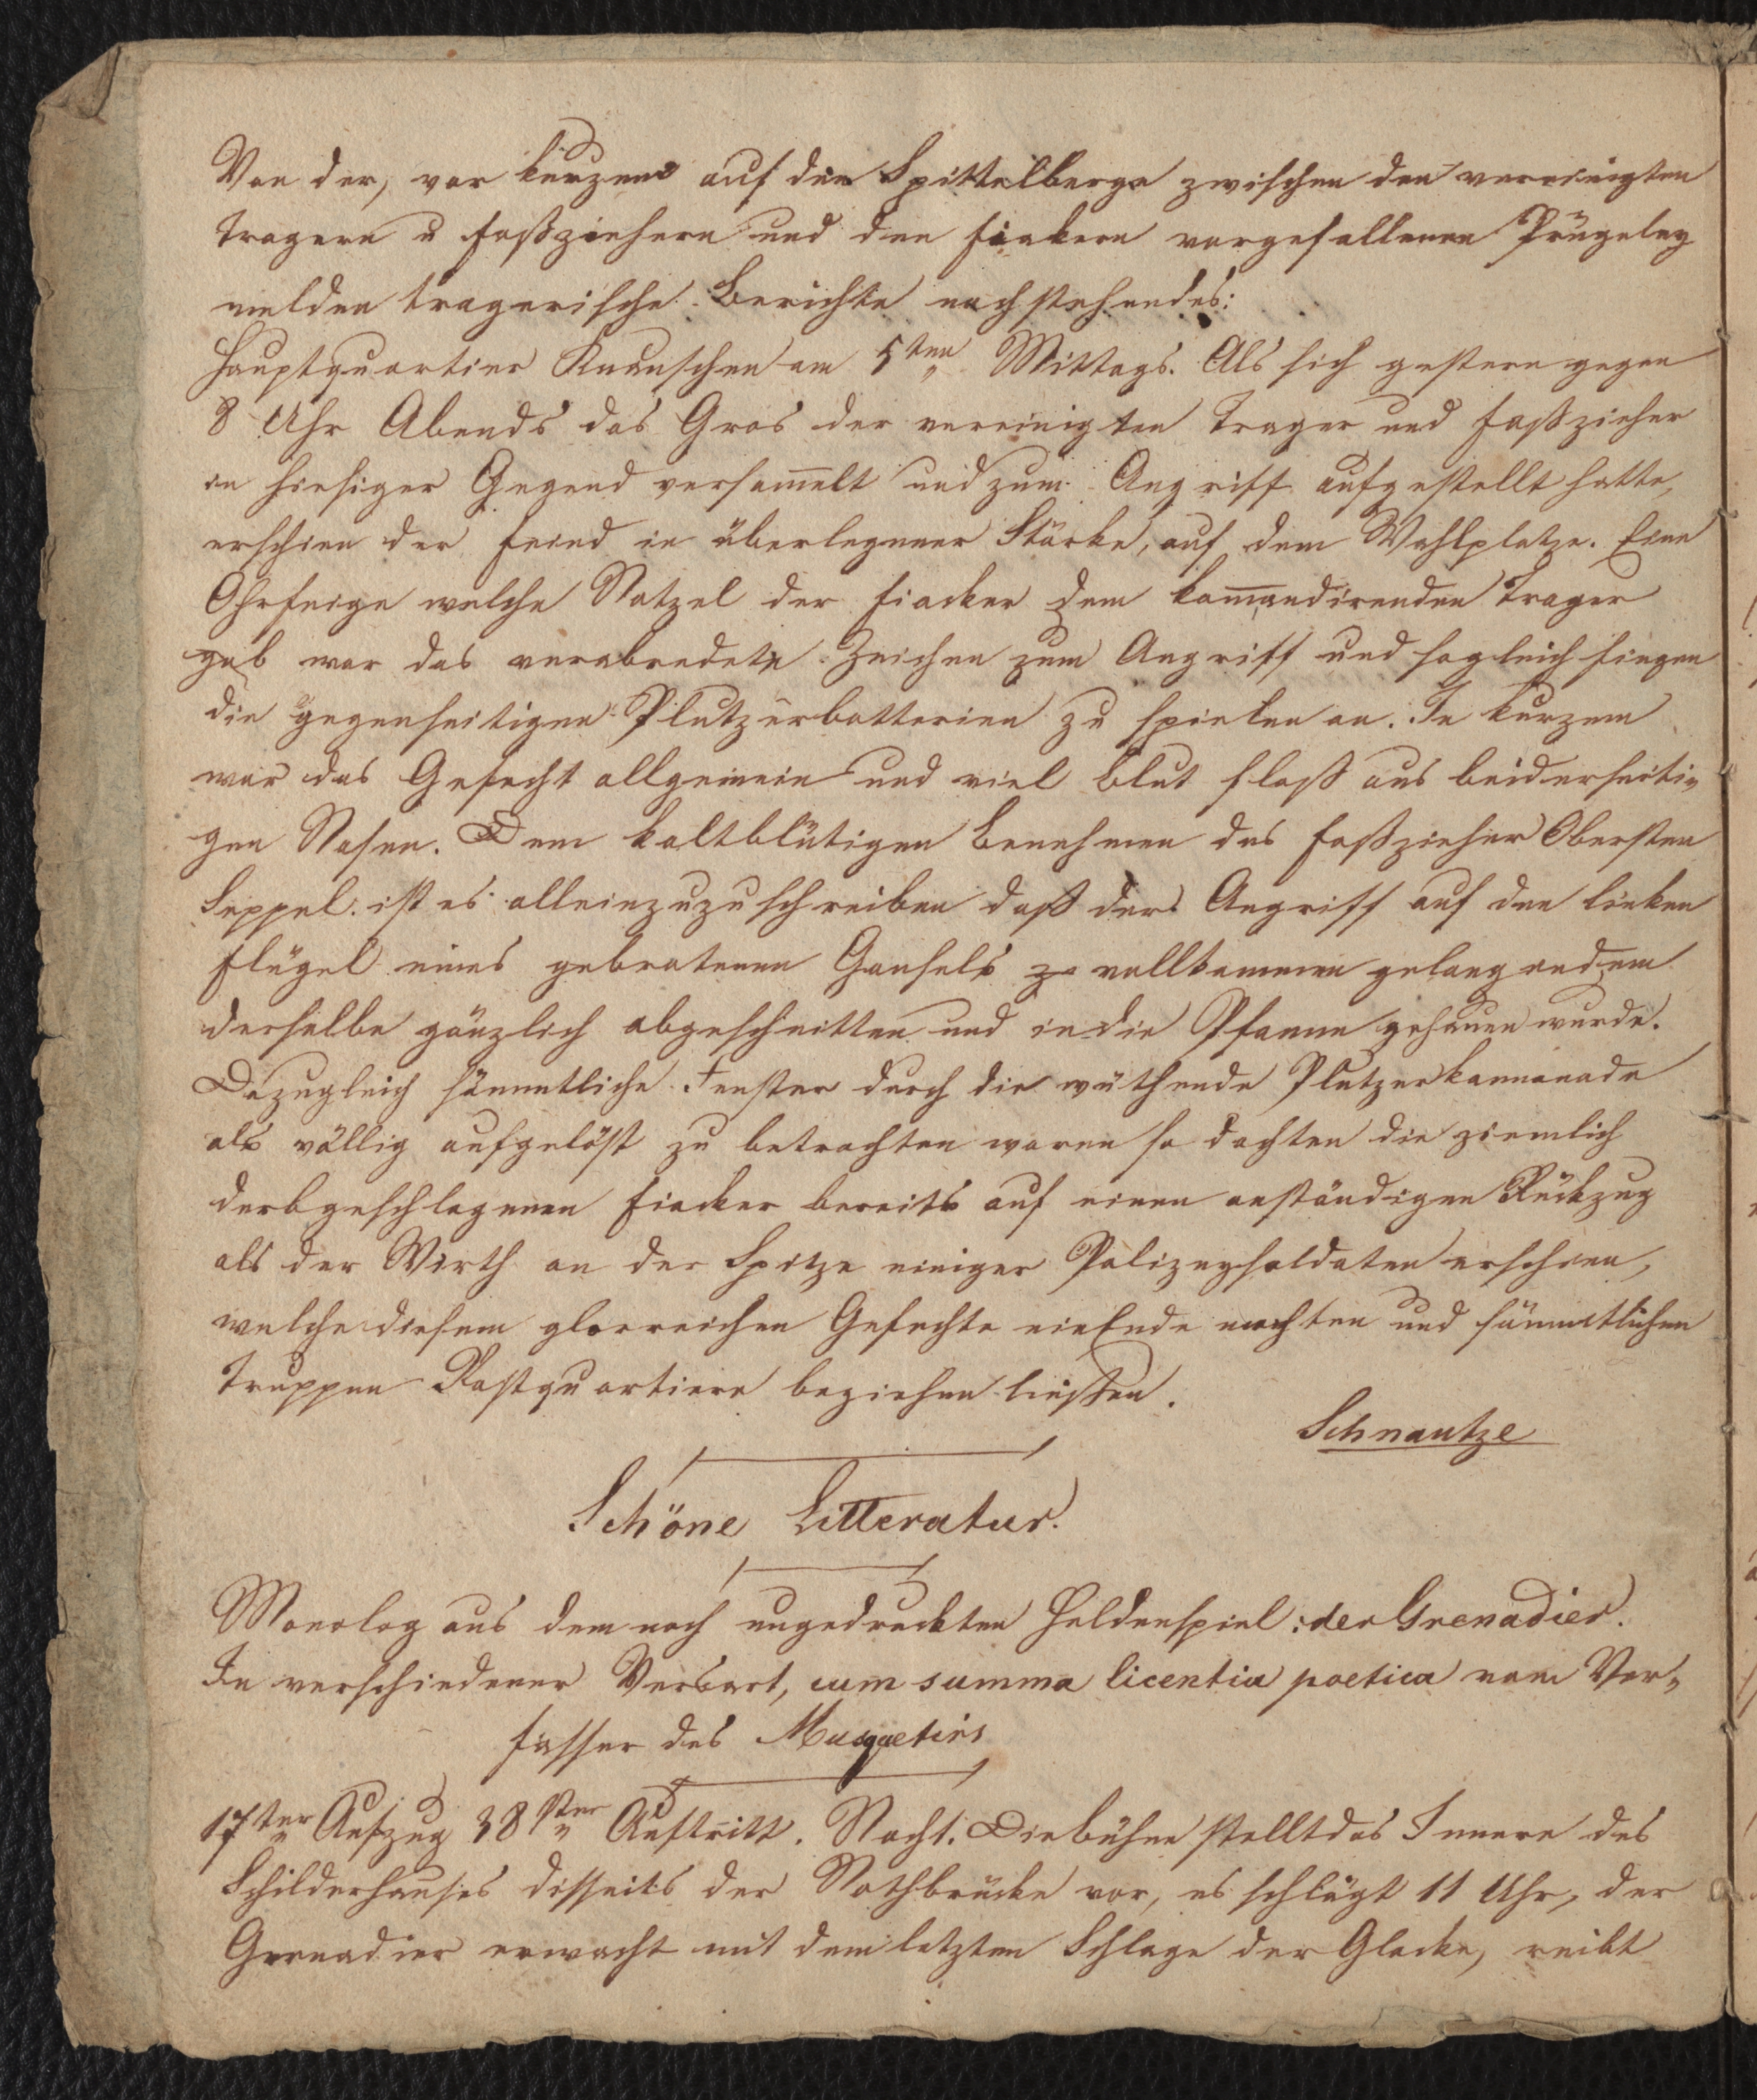 Von der, vor kurzem auf den Spittelberge zwischen den vereinigten
Tragern u Faßziehern und den Fiakern vorgefallenen Prügeley
melden tragerische Berichte nachstehendes:
Hauptquartier am 5ten Mittags. Als sich gestern gegen
8 Uhr Abends das Gros der vereinigten Trager und Faßzieher
in hiesiger Gegend versam̅elt und zum Angriff aufgestellt hatte,
erschien der Feind in überlegener Stärke, auf dem Wahlplatze. Eine
Ohrfeige welche Natzel der Fiacker dem kom̅andirenden Trager
gab war das verabredete Zeichen zum Angriff und sogleich fingen
die gegenseitigen Plutzerbatterien zu spielen an. In kurzem
war das Gefecht allgemein und viel Blut floß aus beiderseiti-
gen Nasen. Dem kaltblütigen Benehmen des Faßzieher Obersten
Seppel ist es allein zuzuschreiben daß der Angriff auf den linken
Flügel eines gebratenen Gansels vollkommen gelang indem
derselbe gänzlich abgeschnitten und in die Pfanne gehauen wurde.
Da zugleich sämmtliche Fenster durch die wüthende Plutzerkannonade
als völlig aufgelöst zu betrachten waren so dachten die ziemlich
derbgeschlagenen Fiacker bereits auf einen anständigen Rückzug
als der Wirth an der Spitze einiger Polizeysoldaten erschien,
welche diesem glorreichen Gefechte ein Ende machten und sämmtlichen
Truppen Rastquartiere beziehen liessen.
Schnautze
Schöne Litteratur.
Monolog aus dem noch ungedruckten Heldenspiel: der Grenadier.
In verschiedener Versart, cum summa licentia poetica vom Ver-
fasser des Musquetirs
17ter Aufzug 38ster Auftritt. Nacht. Die Bühne stellt das Innere des
Schilderhauses disseits der Nothbrücke vor, es schlägt 11 Uhr, der
Grenadier erwacht mit dem letzten Schlage der Glocke, reibt